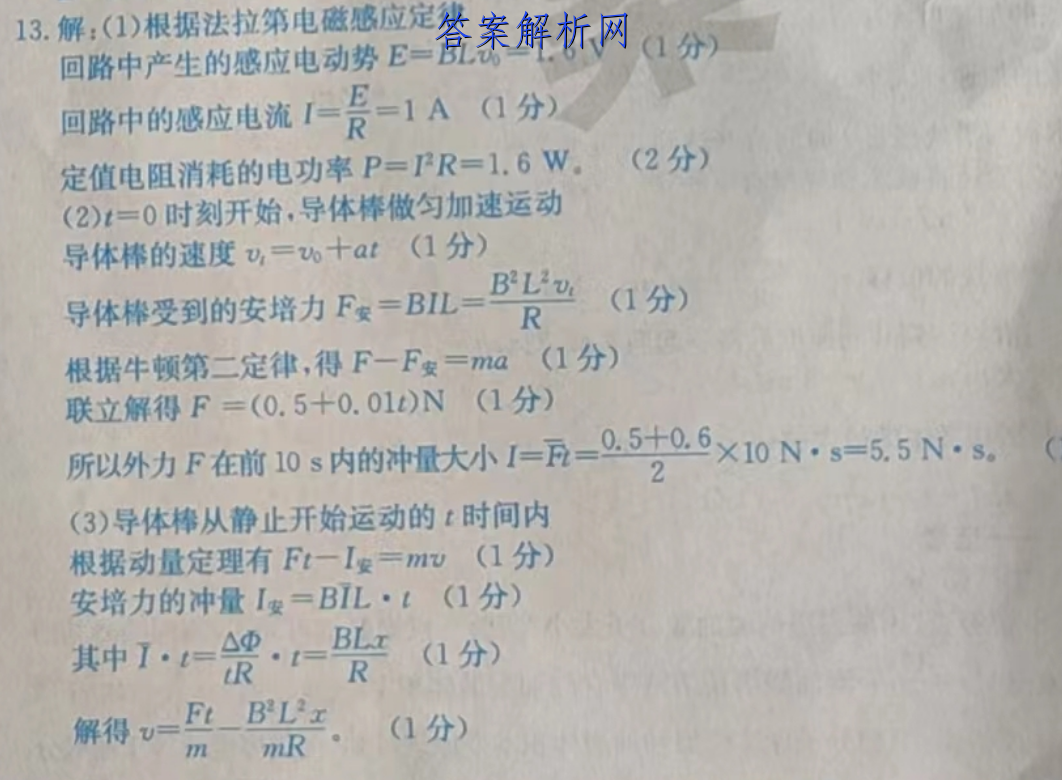 答案解析网
13.解:(1)根据法拉第电磁感应定律
回路中产生的感应电动势 E=BLv₀=1.6 V (1分)
回路中的感应电流 I=E/R=1 A (1分)
定值电阻消耗的电功率 P=I²R=1.6 W。 (2分)
(2)t=0时刻开始,导体棒做匀加速运动
导体棒的速度 vₜ=v₀+at (1分)
导体棒受到的安培力 F安=BIL=B²L²vₜ/R (1分)
根据牛顿第二定律,得 F-F安=ma (1分)
联立解得 F =(0.5+0.01t)N (1分)
所以外力 F 在前 10 s内的冲量大小 I=F̅t=(0.5+0.6)/2×10 N·s=5.5 N·s。 (
(3)导体棒从静止开始运动的 t 时间内
根据动量定理有 Ft-I安=mv (1分)
安培力的冲量 I安=BI̅L·t (1分)
其中 I̅·t=ΔΦ/tR·t=BLx/R (1分)
解得 v=Ft/m-B²L²x/mR。 (1分)